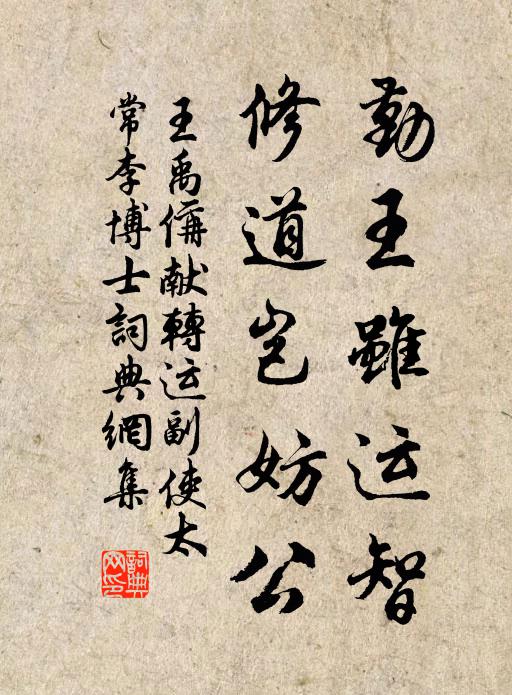 勤王雖运智
修道岂妨公
王禹偁献轉运副使太
常李博士詞典網集
詞典
网印